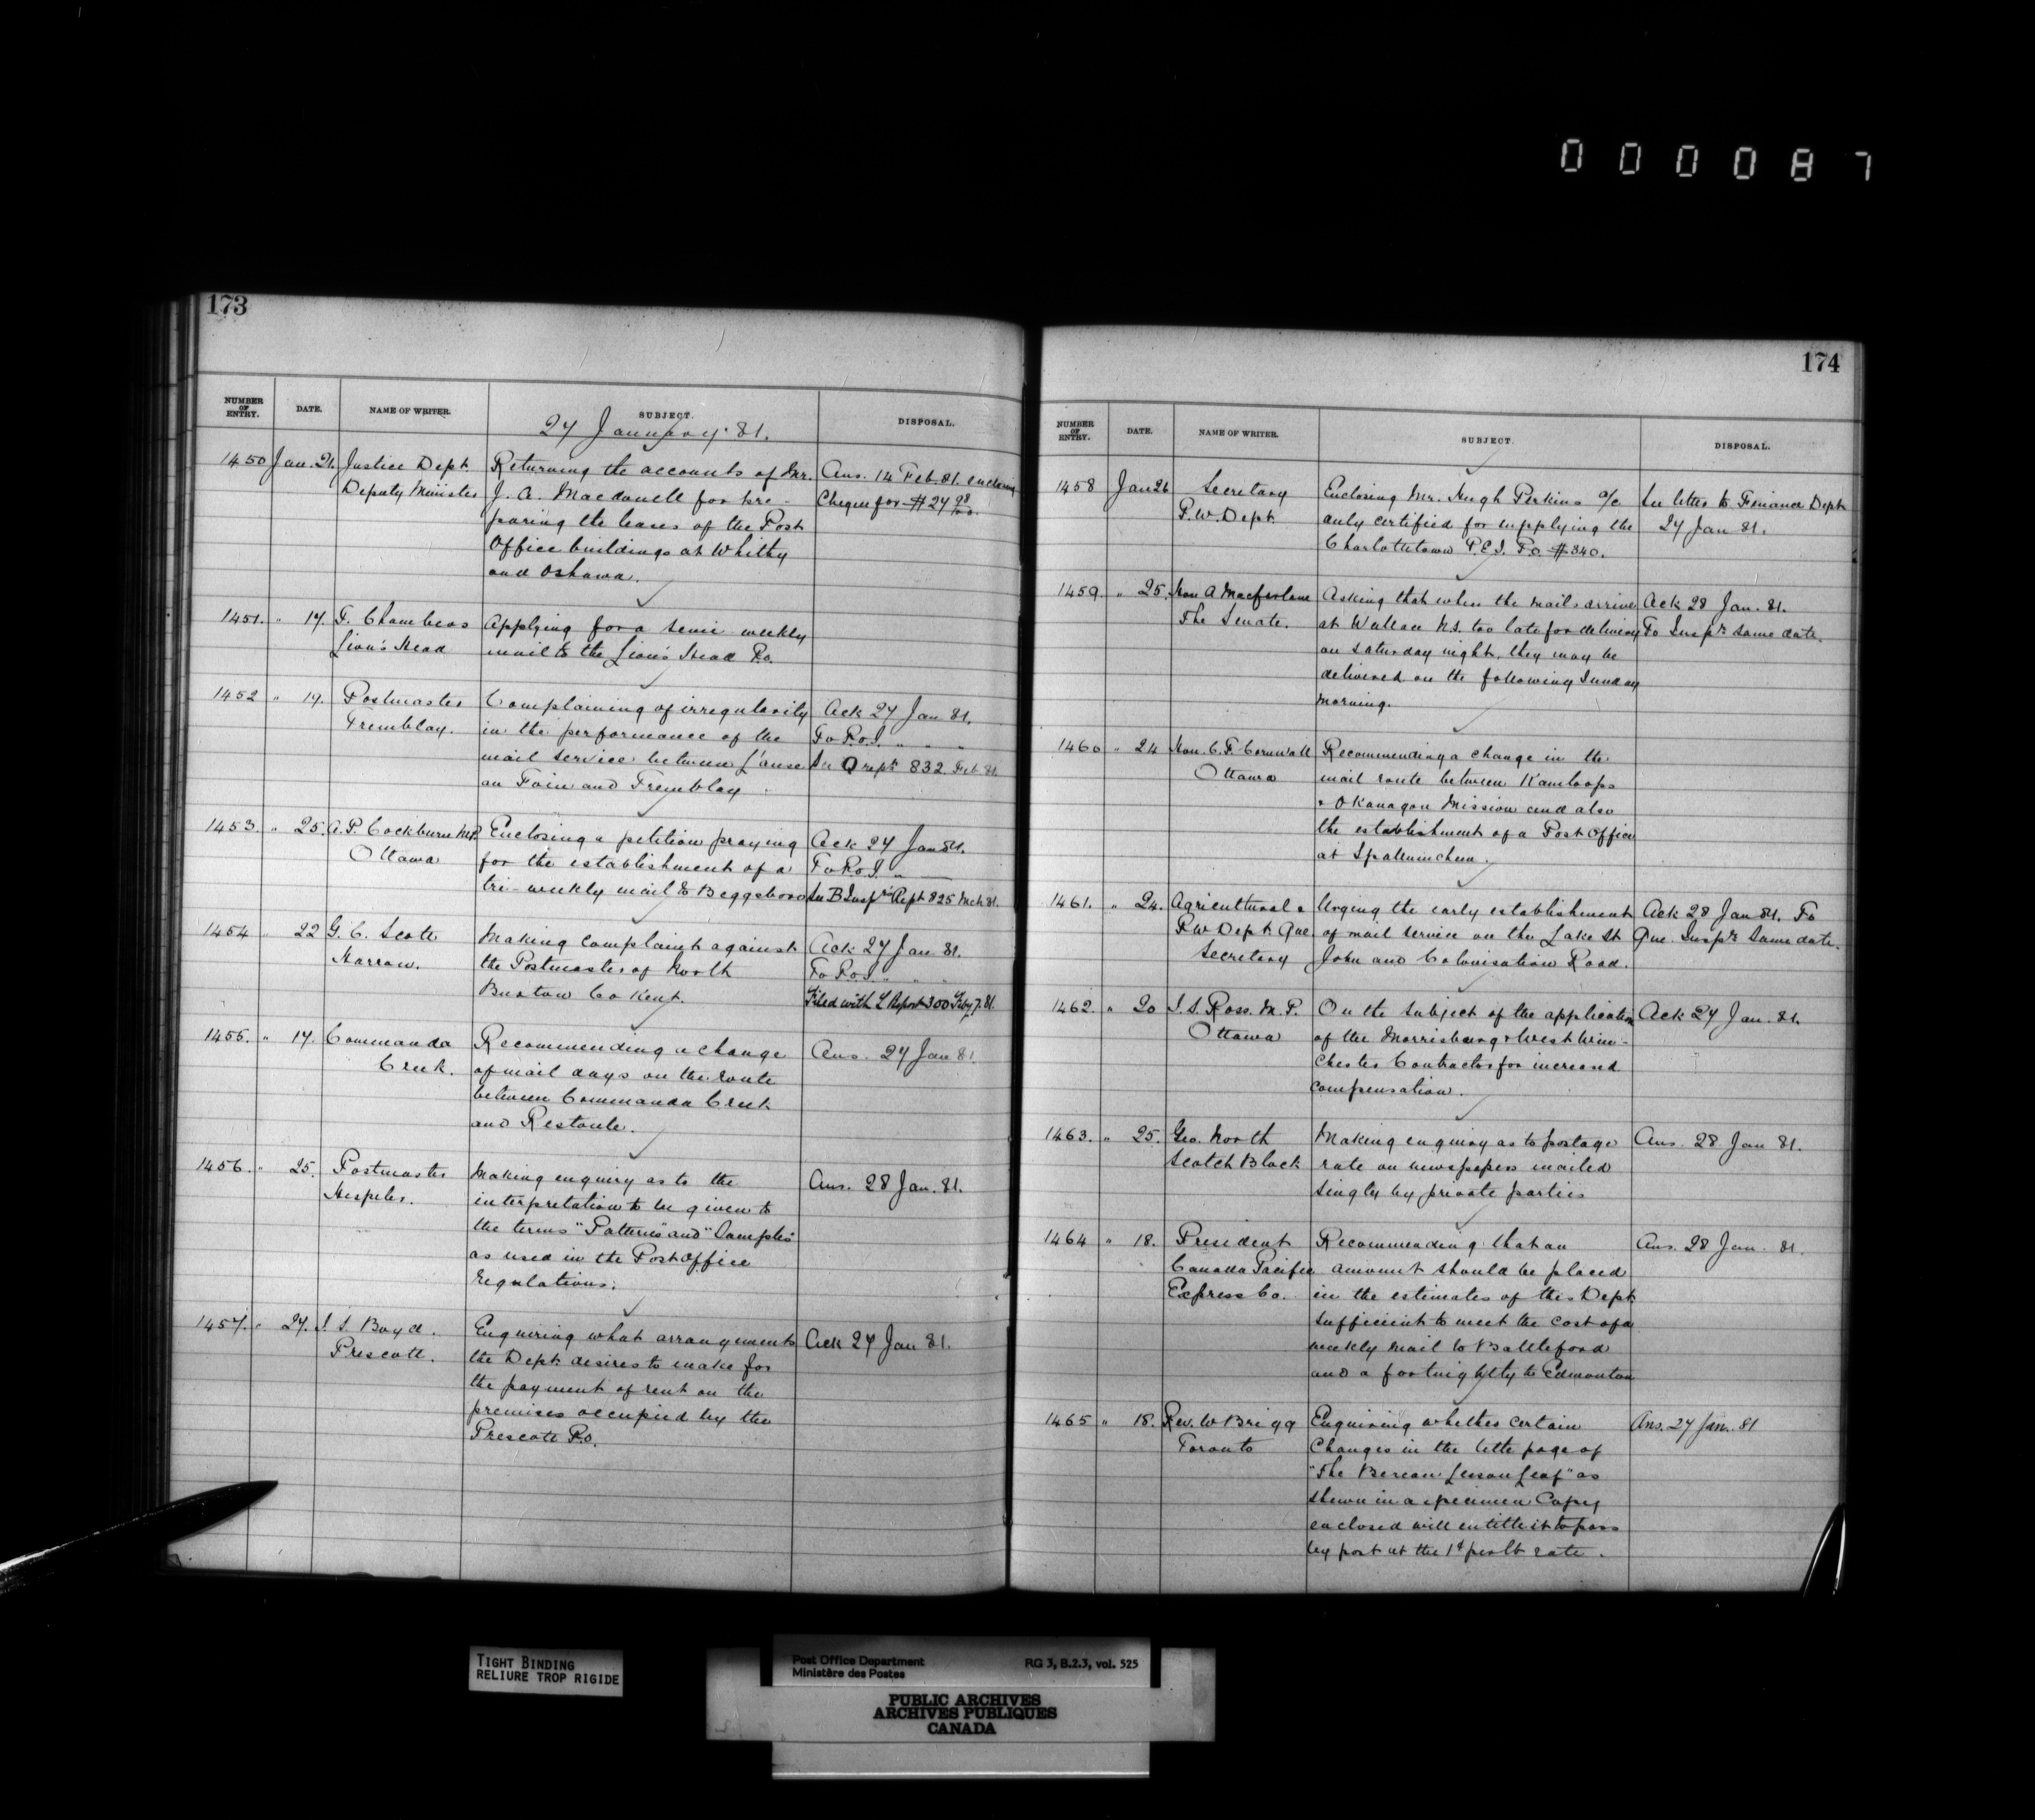 0 0 0 0 8 7
173
NUMBER OF ENTRY. DATE. NAME OF WRITER. SUBJECT. DISPOSAL.
27 January 81.
1450 Jan. 21. Justice Dept. Returning the accounts of Mr. Ans. 14 Feb. 81. enclosing
Deputy Minister J. A. Macdonell for pre- Cheque for $24 98/100.
paring the leases of the Post
Office buildings at Whitby
and Oshawa.
1451. " 17. F. Chambers Applying for a semi weekly
Lion's Head mail to the Lion's Head P.O.
1452 " 19. Postmaster Complaining of irregularity Ack 27 Jan 81.
Tremblay. in the performance of the To P.O.I. " " "
mail service between L'anse See Q rept 832. Feb 81.
au Foin and Tremblay
1453. " 25. A. P. Cockburn M.P. Enclosing a petition praying Ack 27 Jan 81.
Ottawa for the establishment of a To P.O.I. "
tri-weekly mail to Beggsboro See B Insprs Rept 825 Mch 81.
1454 " 22 G. C. Scott Making complaint against Ack 27 Jan 81.
Harrow. the Postmaster of North To P.O.I " "
Buxton Co Kent. Filed with L Report 300 Feby 7. 81.
1455. " 17. Commanda Recommending a change Ans. 27 Jan 81.
Creek. of mail days on the route
between Commanda Creek
and Restoule.
1456. " 25. Postmaster Making enquiry as to the Ans. 28 Jan. 81.
Hespeler. interpretation to be given to
the terms "Patterns" and "Samples"
as used in the Post Office
regulations.
1457. " 27. J. S. Boyd. Enquiring what arrangements Ack 27 Jan 81.
Prescott. the Dept. desires to make for
the payment of rent on the
premises occupied by the
Prescott P.O.
174
NUMBER OF ENTRY. DATE. NAME OF WRITER. SUBJECT. DISPOSAL.
1458 Jan 26 Secretary Enclosing Mr. Hugh Perkins a/c See letter to Finance Dept
P. W. Dept. duly certified for supplying the 27 Jan 81.
Charlottetown P.E.I. P.O. $340.
1459. " 25. Hon A Macfarlane Asking that when the mails arrive Ack 28 Jan. 81.
The Senate. at Wallace N.S. too late for delivery To Inspr same date.
on Saturday night, they may be
delivered on the following Sunday
morning.
1460 " 24 Hon. C. F. Cornwall Recommending a change in the
Ottawa mail route between Kamloops
& Okanagan Mission and also
the establishment of a Post Office
at Spallumcheen.
1461. " 24. Agricultural & Urging the early establishment Ack 28 Jan 81. To
P.W Dept. Que of mail service on the Lake St Que. Inspr Same date.
Secretary John and Colonisation Road.
1462. " 20 J. S. Ross. M. P. On the subject of the application Ack 27 Jan. 81.
Ottawa of the Morrisburg & West Win-
chester Contractor for increased
compensation.
1463. " 25. Geo. North Making enquiry as to postage Ans. 28 Jan 81.
Scotch Block rate on newspapers mailed
singly by private parties
1464 " 18. President Recommending that an Ans. 28 Jan. 81.
Canada Pacific amount should be placed
Express Co. in the estimates of this Dept
sufficient to meet the cost of a
weekly mail to Battleford
and a fortnightly to Edmonton
1465 " 18. Rev. W Brigg Enquiring whether certain Ans. 27 Jan. 81
Toronto Changes in the title page of
"The Berean Lesson Leaf" as
shewn in a specimen Copy
enclosed will entitle it to pass
by post at the 1¢ per lb rate.
TIGHT BINDING
RELIURE TROP RIGIDE
Post Office Department RG 3, B.2.3, vol. 525
Ministère des Postes
PUBLIC ARCHIVES
ARCHIVES PUBLIQUES
CANADA